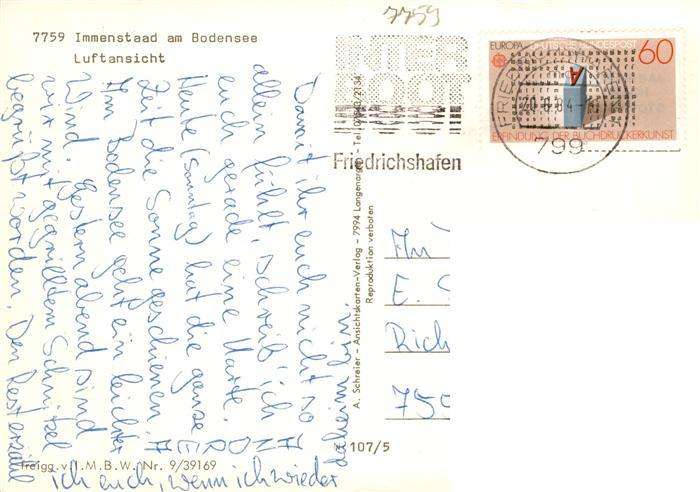 7759
7759 Immenstaad am Bodensee
Luftansicht
Damit ihr euch nicht so
allein fühlt, schreib' ich
euch gerade eine Karte.
Heute (Sonntag) hat die ganze
Zeit die Sonne geschienen
Am Bodensee geht ein leichter
Wind. Gestern abend sind
wir mit gegrilltem Schnitzel
begrüßt worden. Den Rest erzähl
ich euch, wenn ich wieder
daheim bin.
freigg. v. I.M.B.W. Nr. 9/39169
A. Schreier - Ansichtskarten-Verlag - 7994 Langenargen - Tel.
Reproduktion verboten
107/5
EUROPA DEUTSCHE BUNDESPOST 60
ERFINDUNG DER BUCHDRUCKERKUNST
Friedrichshafen
799
An
E.
Rich
750